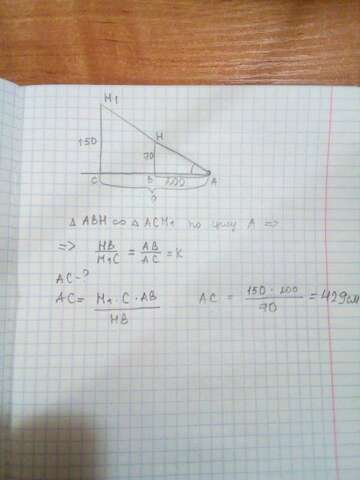 H1
H
150
70
C
B
200
A
?
Δ ABH ∞ Δ ACH1 по углу A =>
=> HB/H1C = AB/AC = K
AC-?
AC = H1·C·AB/HB AC = 150·200/70 = 429см